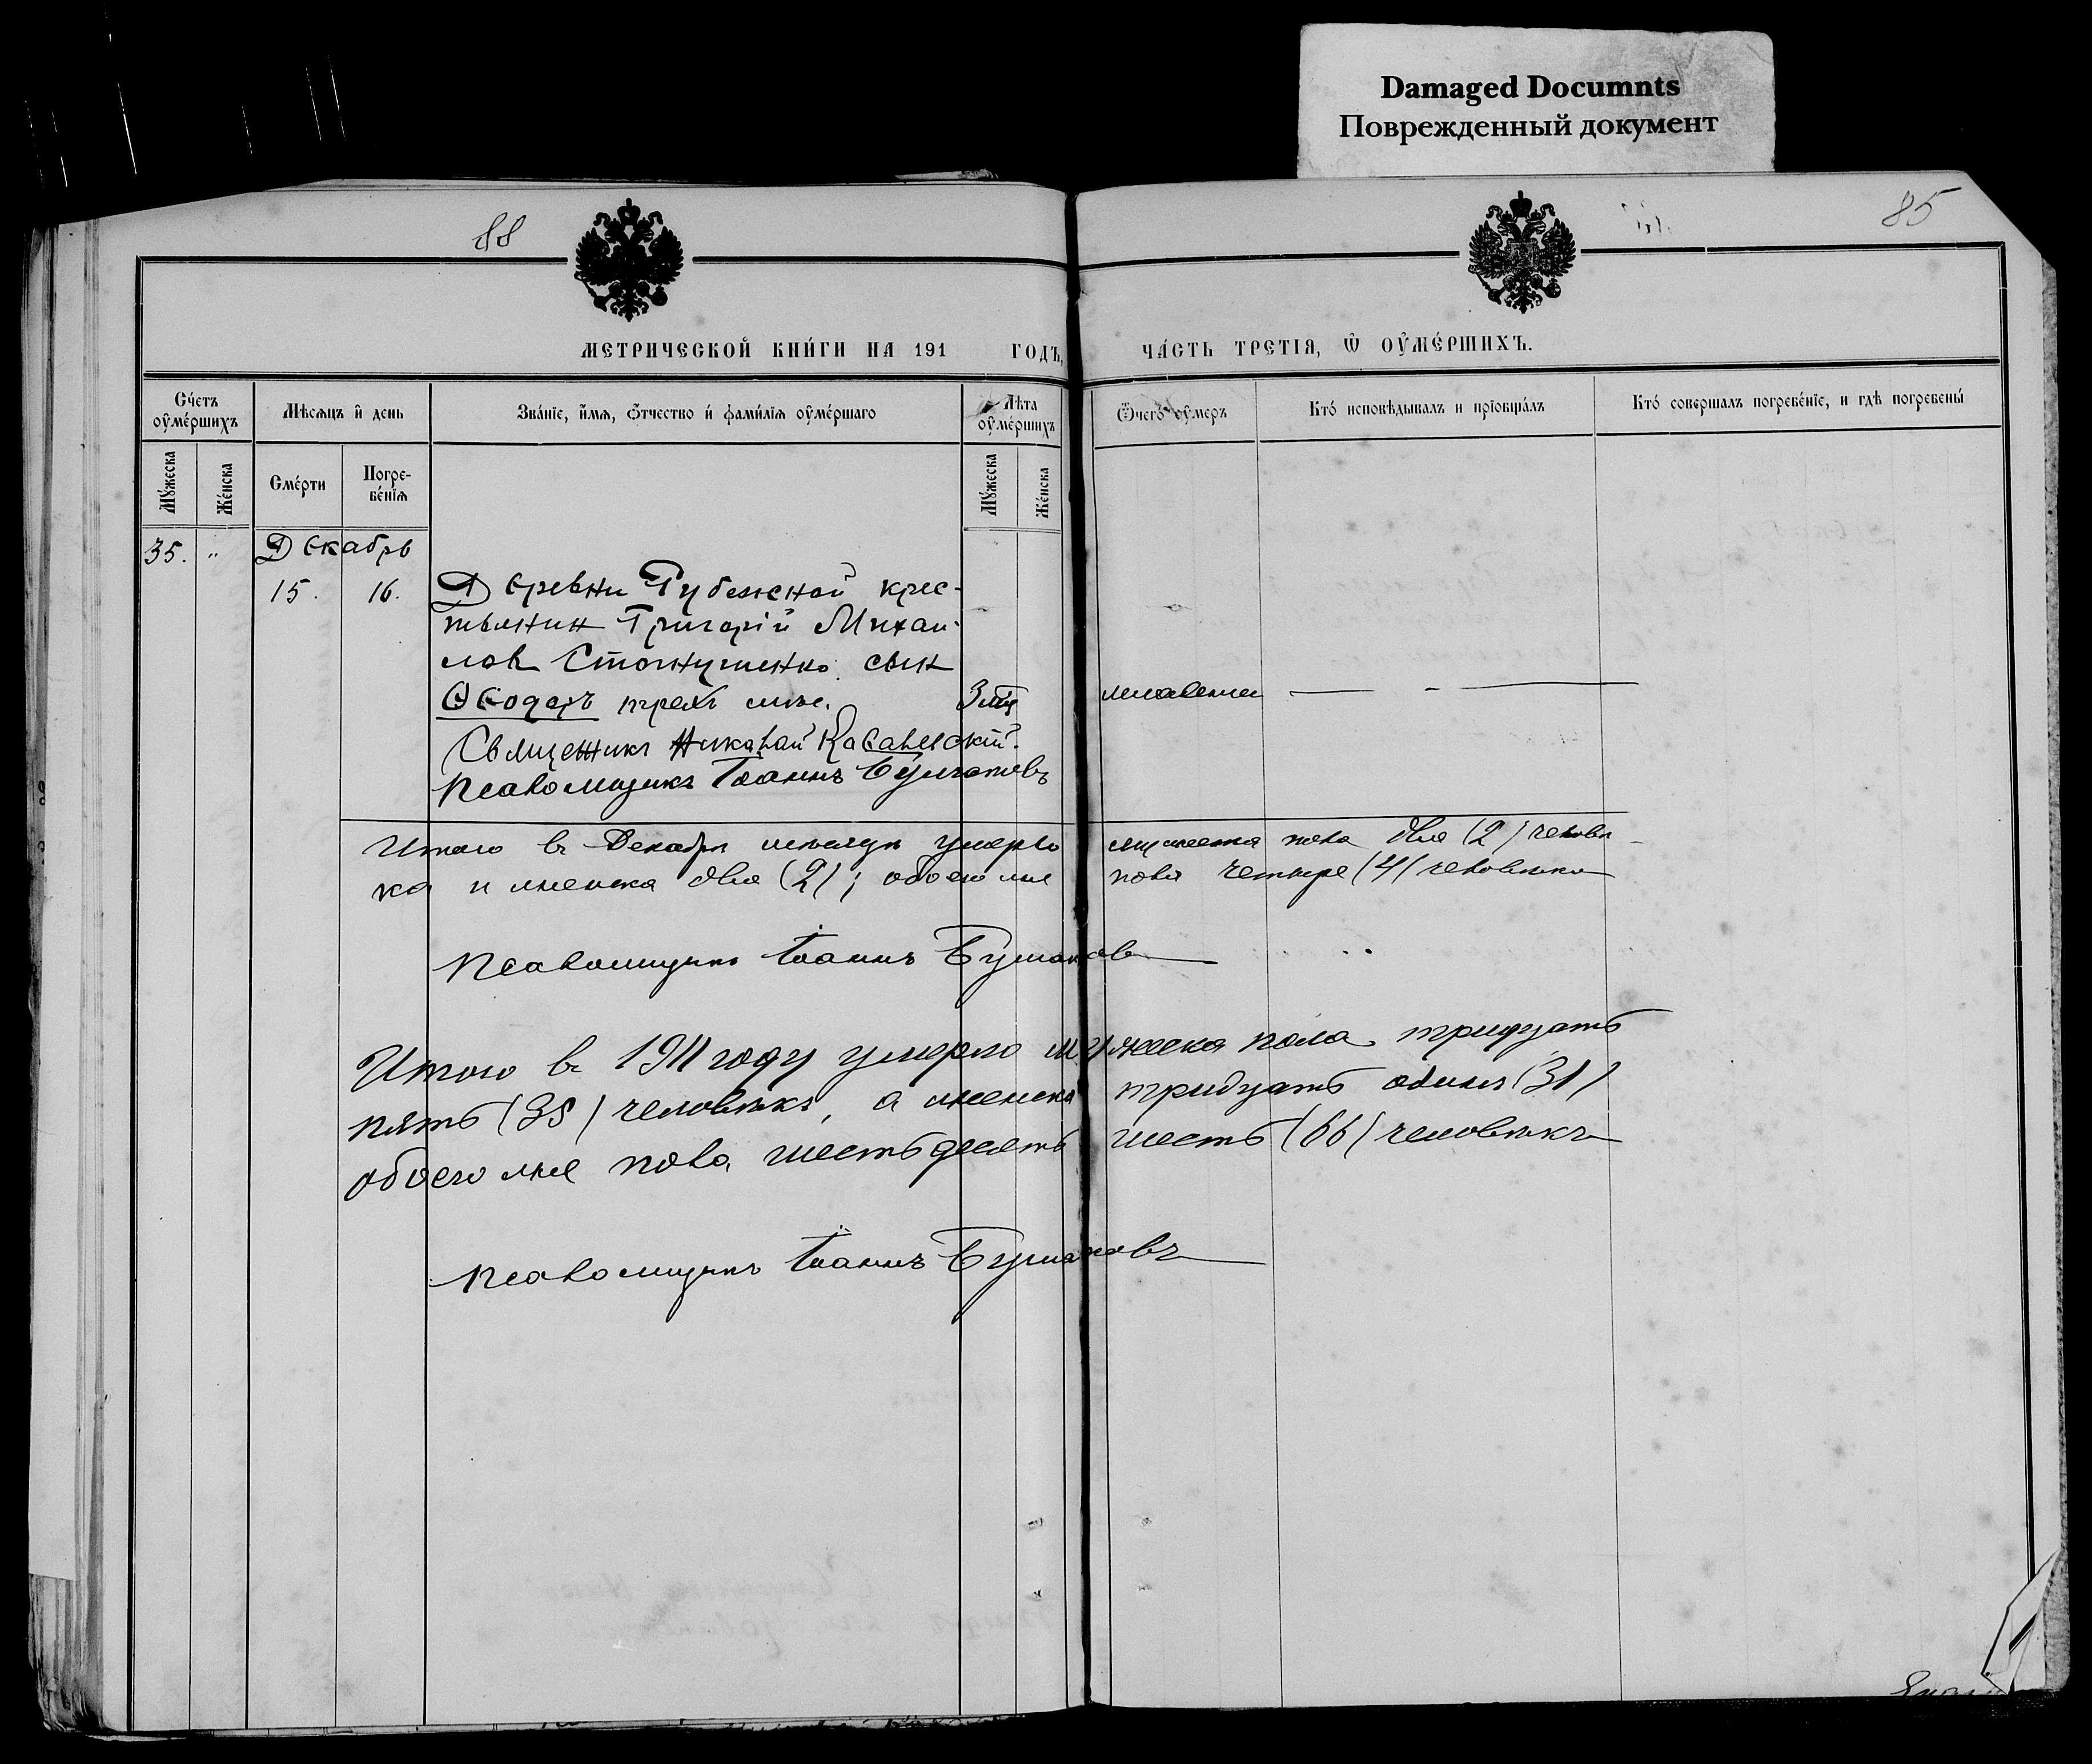 Damaged Documnts
Поврежденный документ
88
85
МЕТРИЧЕСКОЙ КНИ́ГИ НА 191 ГОДЪ, ЧА́СТЬ ТРЕТІЯ, Ѿ ОУМЕ́РШИХЪ.
Сче́тъ оуме́ршихъ
Мѣсяцъ и день
Зва́ніе, и́мя, о́тчество и́ фами́лія оуме́ршаго
Лѣта оуме́ршихъ
Ѿчего оумеръ
Кто́ исповѣдывалъ и пріобща́лъ
Кто́ совершалъ погребе́ніе, и гдѣ погребены́
Му́жеска
Же́нска
Сме́рти
Погре-бе́нія
Му́жеска
Же́нска
35. " Декабрь
15. 16. Деревни Рубежной крес-
тьянин Григорій Михаи-
лов сын
Ѳеодоръ трехъ мѣс. 3 мц младенч.
Священникъ Николай Казанскій.
Псаломщикъ Іоаннъ Бушаковъ
Итого в Декабрѣ мѣсяцѣ умерло мужеска пола два (2) человѣ-
ка и женска два (2); обоего же пола четыре (4) человѣка
Псаломщикъ Іоаннъ Бушаковъ
Итого въ 1911 году умерло мужеска пола тридцать
пять (35) человѣкъ, а женска тридцать одинъ (31)
обоего же пола шестьдесятъ шесть (66) человѣкъ
Псаломщикъ Іоаннъ Бушаковъ